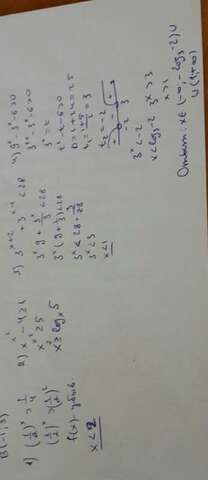 1) (1/2)ˣ > 1/4
(1/2)ˣ > (1/2)²
f(x) - убыв.
x < 2
2) xˣ - 4 ≥ 1
xˣ ≥ 5
x ≥ logₓ 5
3) 3ˣ⁺² + 3ˣ⁻¹ < 28
3ˣ 9 + 3ˣ/3 < 28
3ˣ (9 + 1/3) < 28
3ˣ < 28 · 3/28
3ˣ < 3
x < 1
4) 9ˣ - 3ˣ - 6 > 0
3²ˣ - 3ˣ - 6 > 0
3ˣ = t
t² - t - 6 > 0
D = 1 + 24 = 25
t₁ = (1+5)/2 = 3
t₂ = -2
+ - +
-2 3
3ˣ < -2 3ˣ > 3
x < log₃ -2 x > 1
Ответ: x ∈ (-∞; -log₃ 2) ∪
∪ (1; +∞)